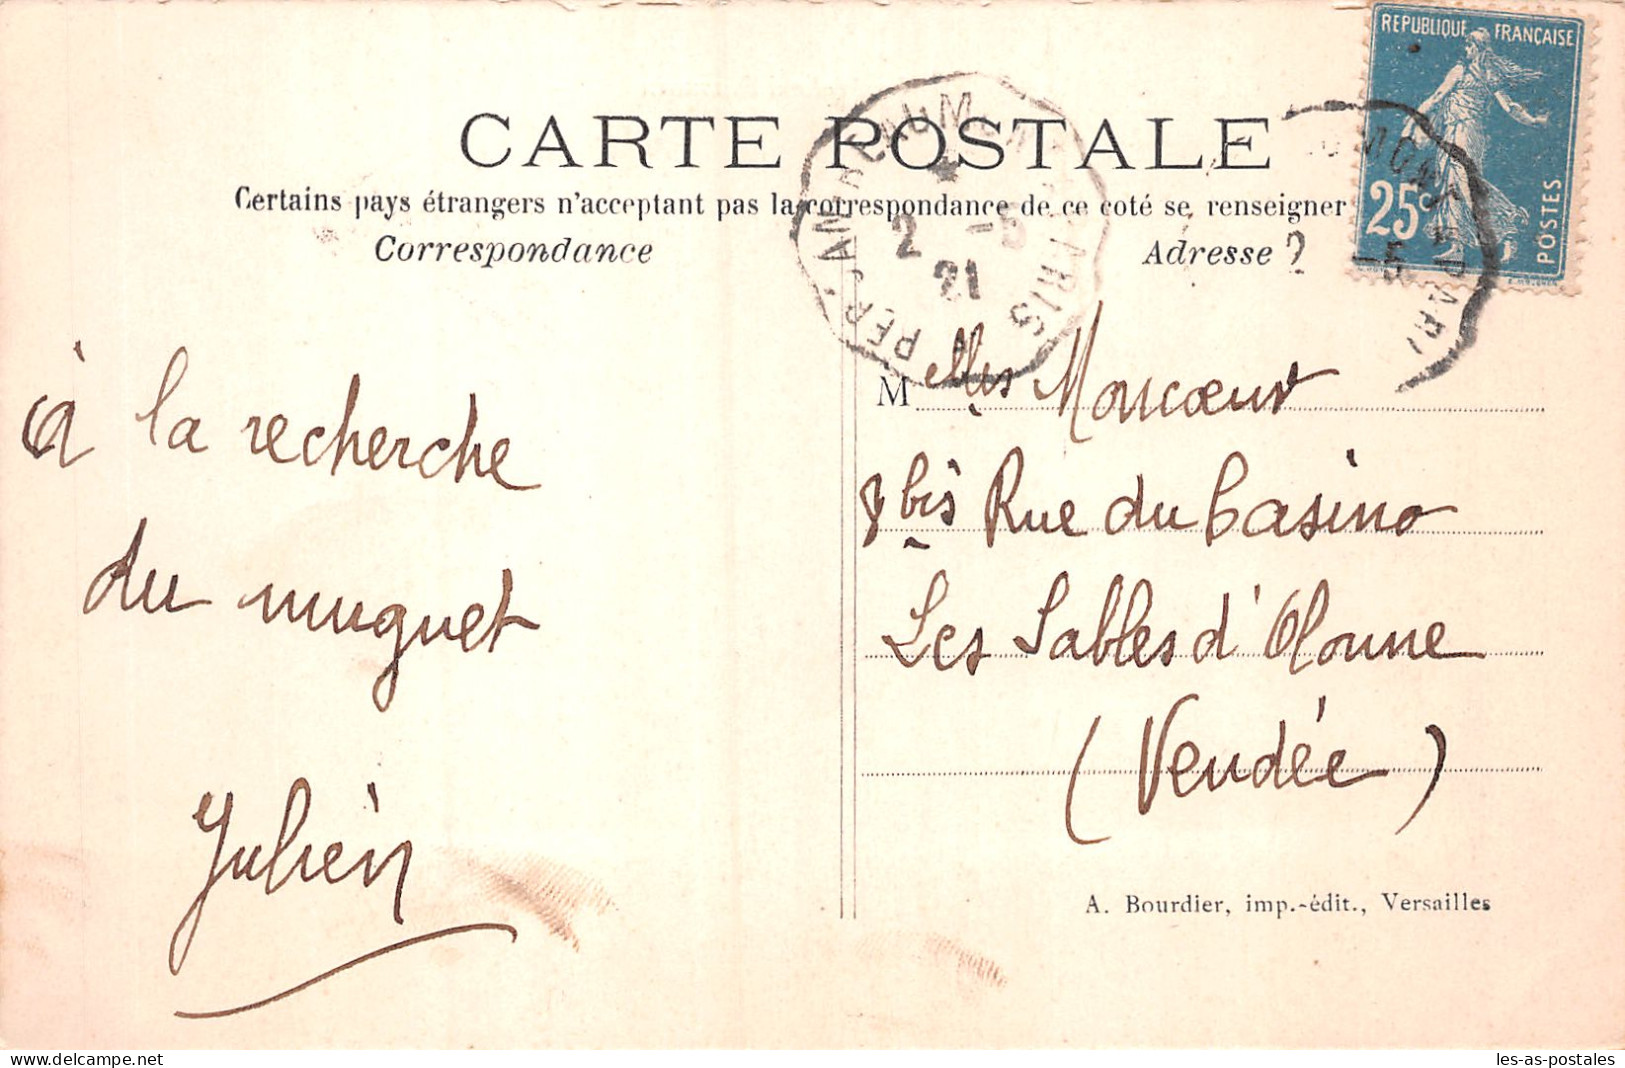 REPUBLIQUE FRANÇAISE
25c
POSTES
CARTE POSTALE
Certains pays étrangers n'acceptant pas la correspondance de ce coté se renseigner
Correspondance
Adresse ?
2 -5
21
PERSAN-BEAUMONT A PARIS
à la recherche
du muguet
Julien
Melles Moncoeur
8 bis Rue du Casino
Les Sables d'Olonne
(Vendée)
A. Bourdier, imp.-édit., Versailles
www.delcampe.net
les-as-postales